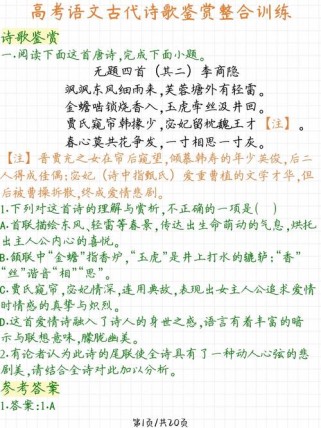 高考语文古代诗歌鉴赏整合训练
诗歌鉴赏
一.阅读下面这首唐诗,完成下面小题。
无题四首(其二)李商隐
飒飒东风细雨来,芙蓉塘外有轻雷。
金蟾啮锁烧香入,玉虎牵丝汲井回。
贾氏窥帘韩掾少,宓妃留枕魏王才【注】。
春心莫共花争发,一寸相思一寸灰。
【注】晋贾充之女在帘后窥望,倾慕韩寿的年少英俊,后二
人得成佳偶;宓妃(诗中指甄氏)爱重曹植的文学才华,但
后被曹操拆散,终成爱情悲剧。
1.下列对这首诗的理解与赏析,不正确的一项是( )
A.首联描绘东风、轻雷等春景,传达出生命萌动的气息,烘托
出主人公内心的喜悦。
B.颔联中"金蟾"指香炉,"玉虎"是井上打水的辘轳;"香"
"丝"谐音"相""思"。
C.贾氏窥帘,宓妃情深,连用典故,表现出女主人公追求爱情
时情感的真挚与炽烈。
D.这首爱情诗融入了诗人的身世之感,语言有着丰富的暗
示与联想意味,朦胧幽美。
2.有论者认为此诗的尾联使全诗具有了一种动人心弦的悲
剧美,请结合全诗对此加以分析。
参考答案
1.答案:1.A
第1页/共20页